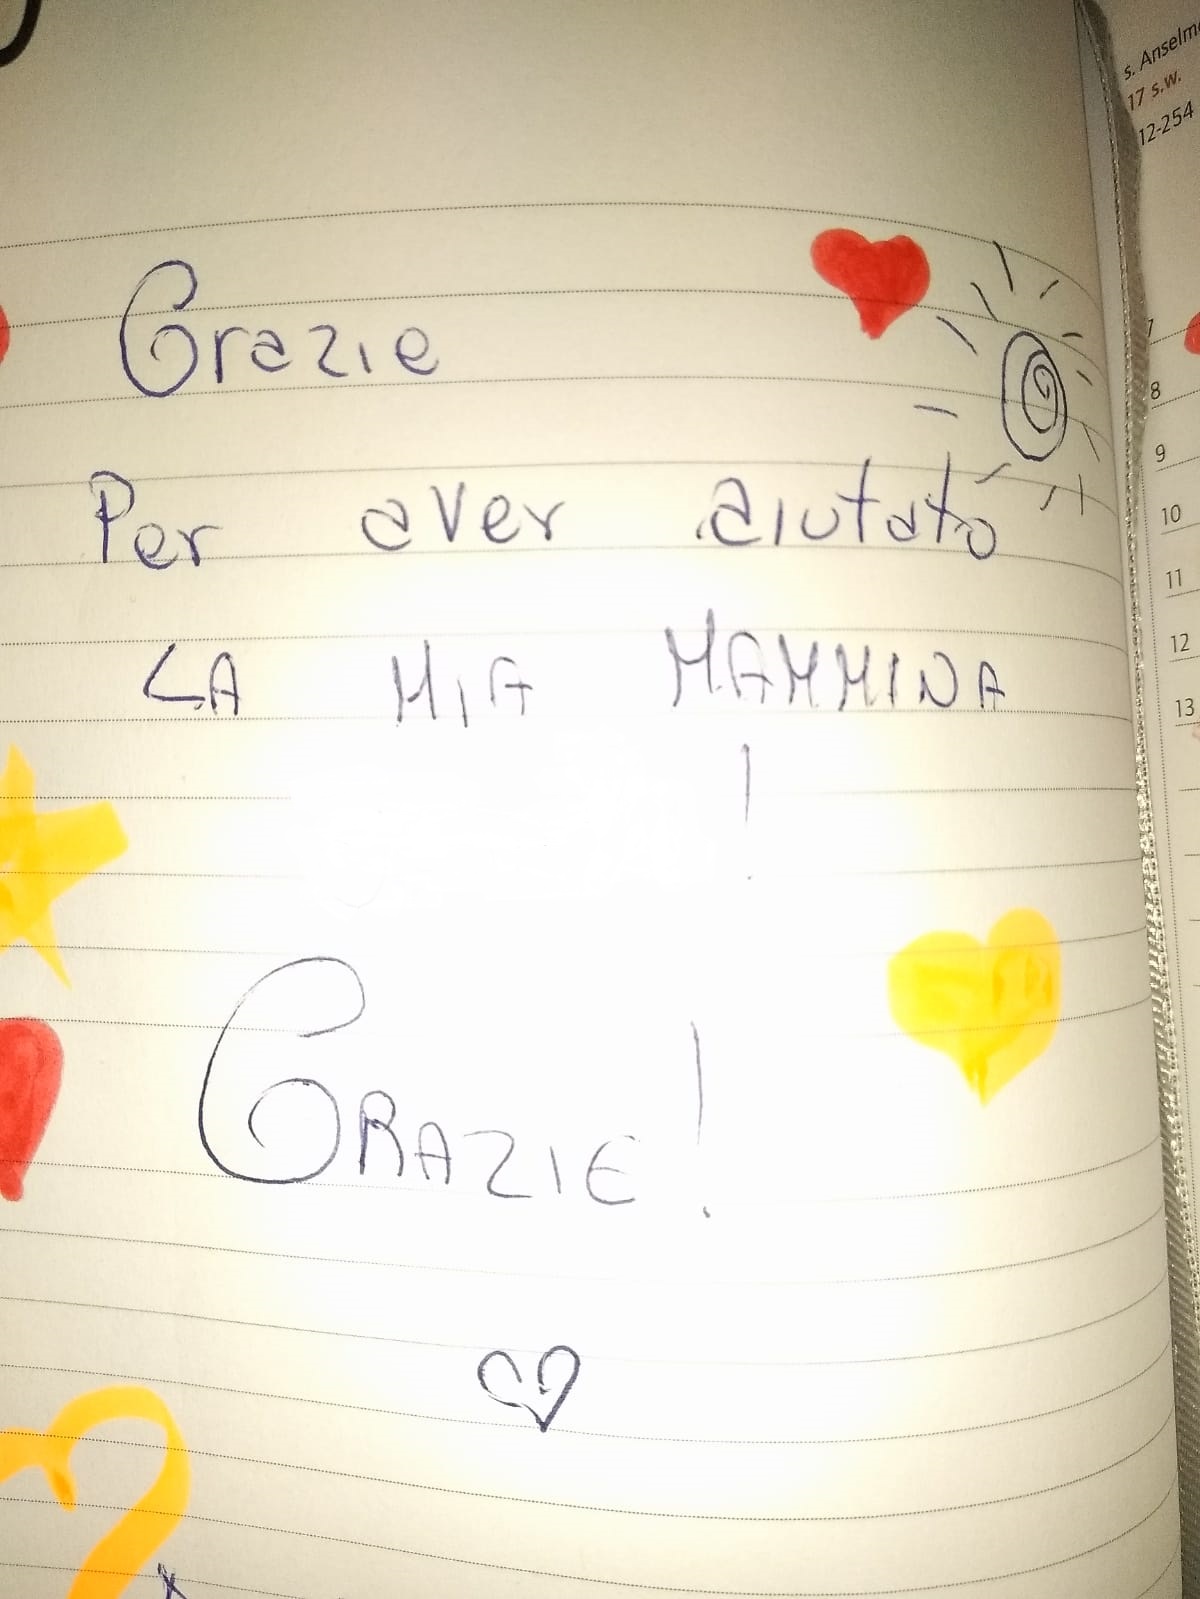 s. Anselmo
17 s.w.
12-254
Grazie
Per aver aiutato
LA MIA MAMMINA
!
GRAZIE!
7
8
9
10
11
12
13